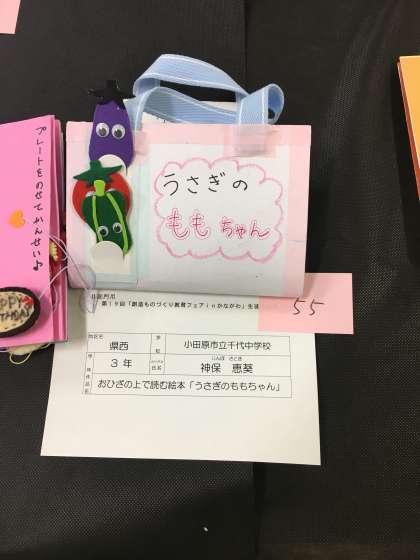 プレートをのせてかんせい♪
うさぎの
ももちゃん
55
第19回「創造ものづくり教育フェアinかながわ」生徒
地区名
県西
学校
小田原市立千代中学校
学年
3年
ふりがな
氏名
じんぼ さとき
神保 恵葵
作品名
おひざの上で読む絵本「うさぎのももちゃん」